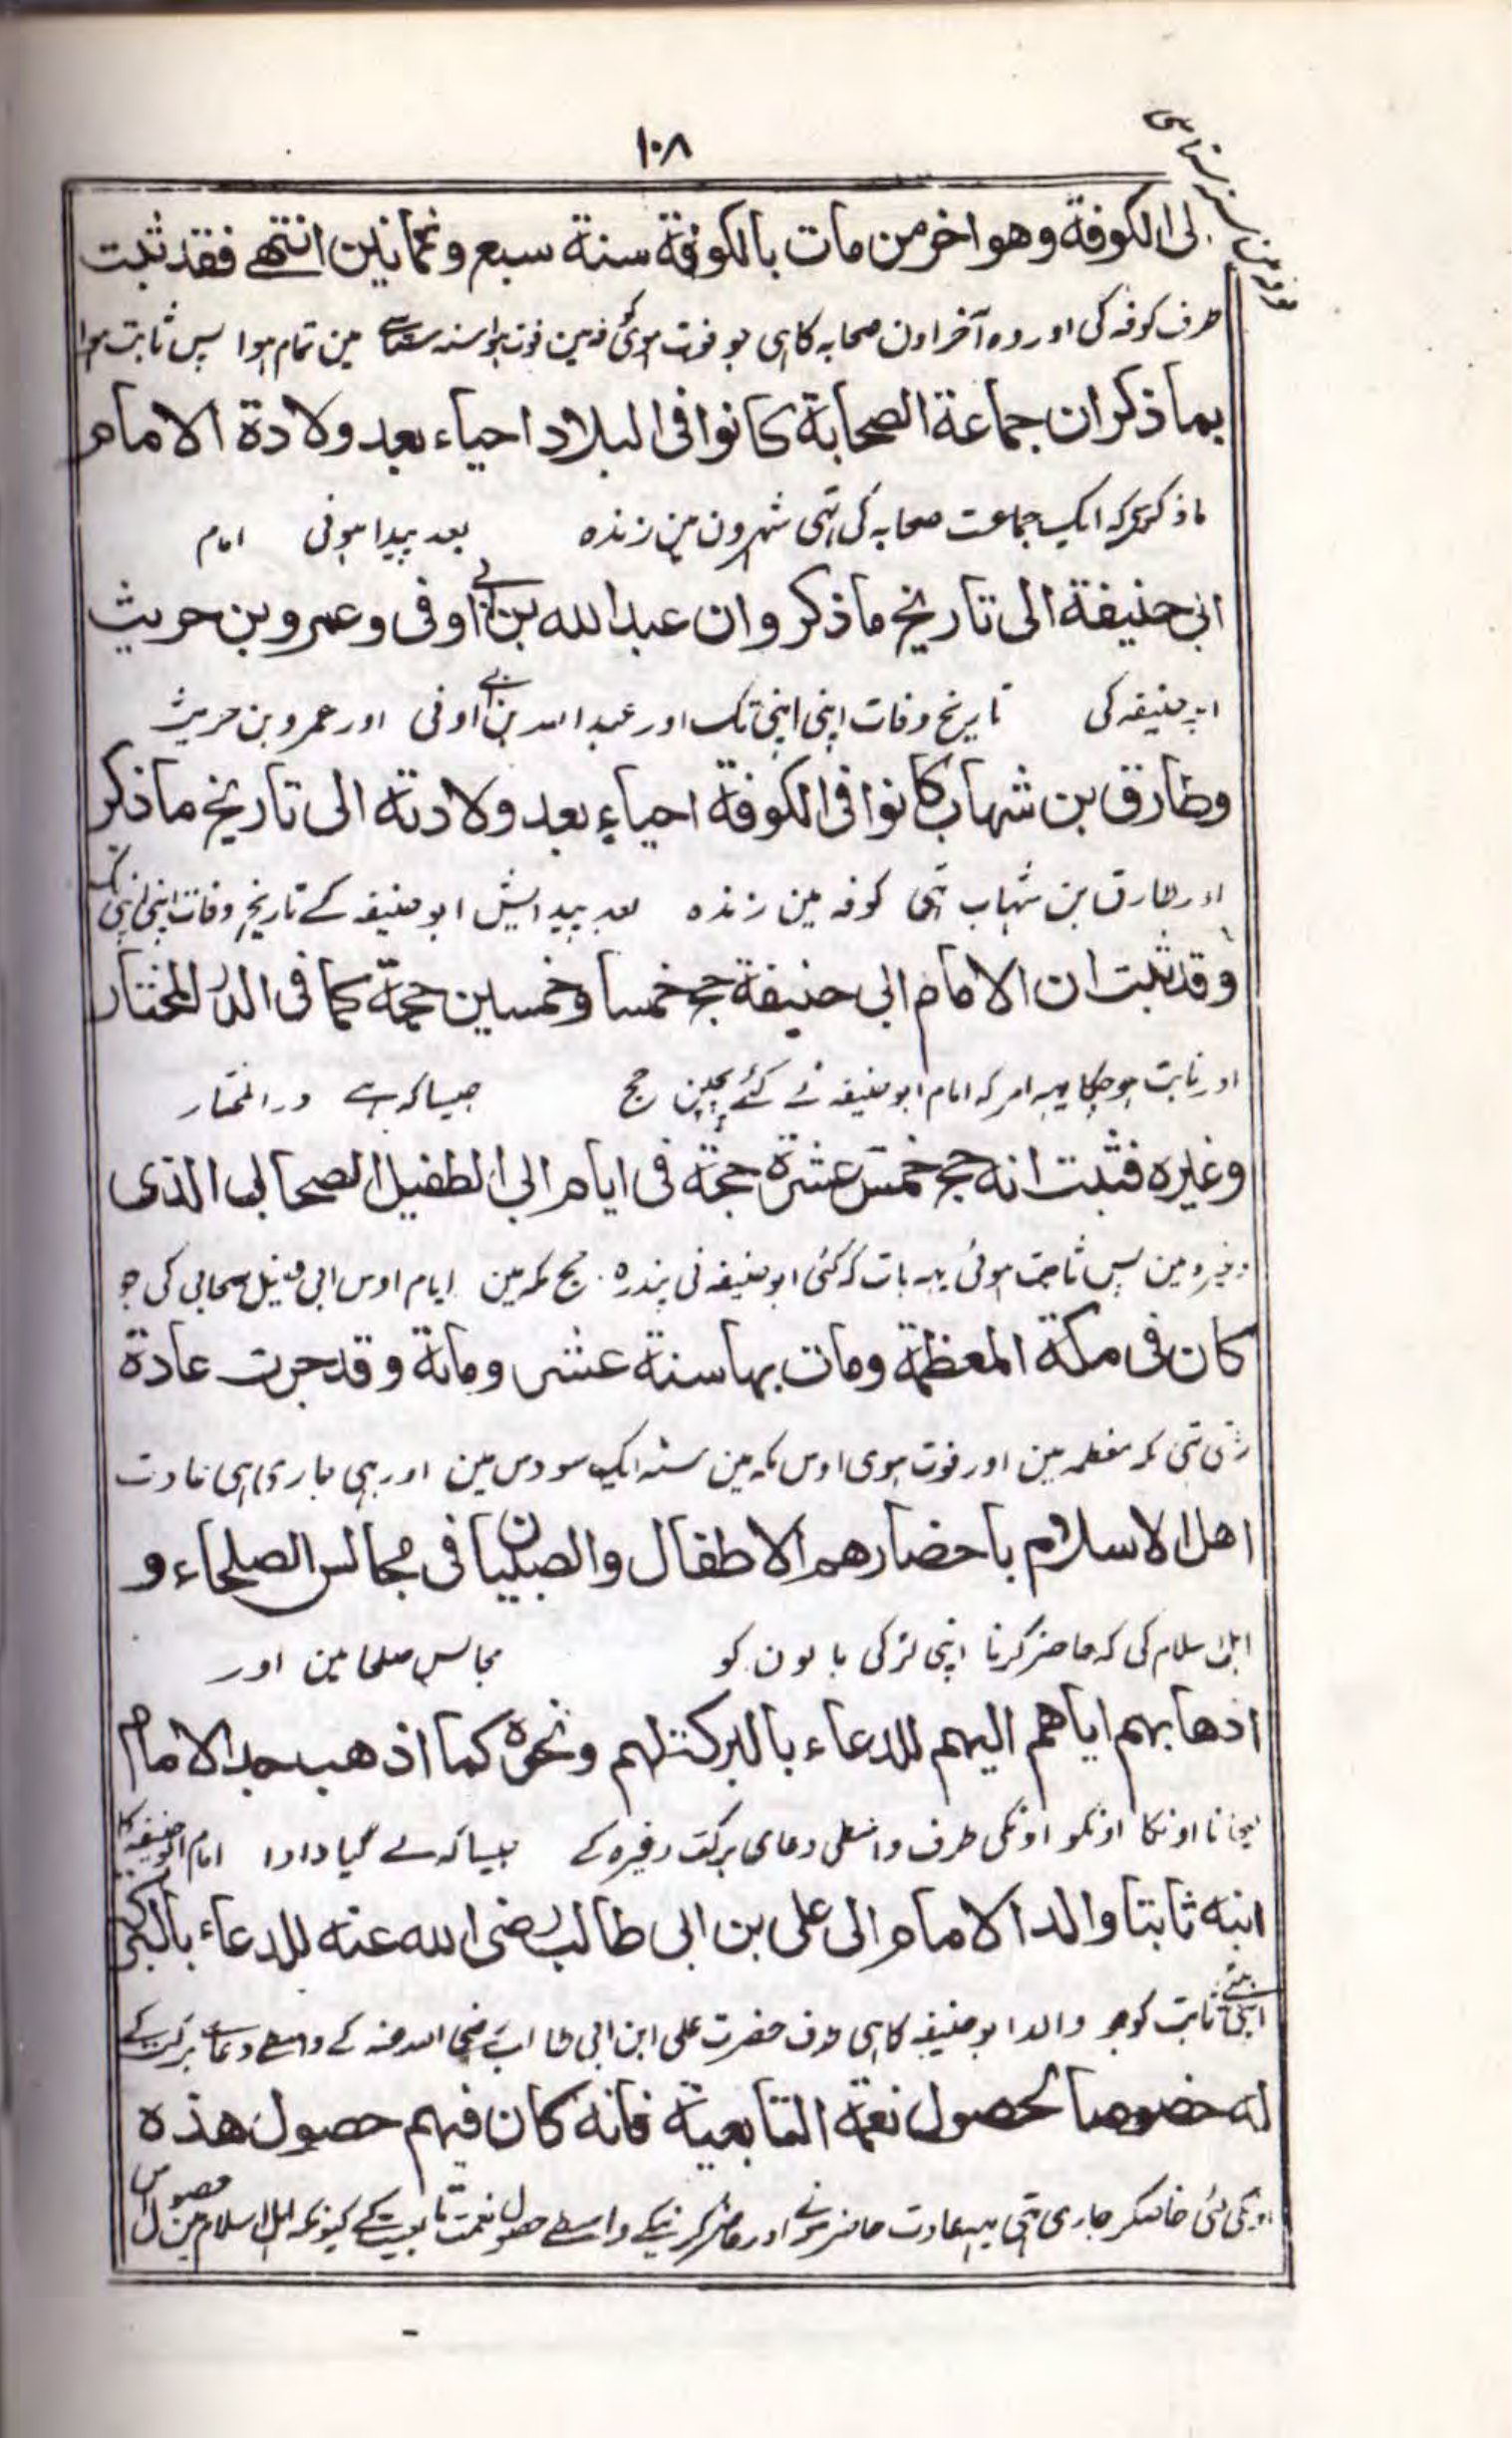 ١٠٨
الى الكوفة وهو اخر من مات بالكوفة سنة سبع وثمانين انتهے فقد ثبت
طرف کوفہ کی اور وہ آخر اون صحابہ کا ہی جو فوت ہوئی کوفہ مین فوت ہوا سنہ مین تمام ہوا پس ثابت ہوا
بما ذكر ان جماعة الصحابة كانوا فى البلاد احياء بعد ولادة الامام
ماذکر کر کہ ایک جماعت صحابہ کی تہی شہرون مین زندہ بعد پیدا ہونی امام
ابى حنيفة الى تاريخ ما ذكر وان عبد الله بن ابے اوفى وعمرو بن حريث
ابو حنیفہ کی تاریخ وفات اپنی اپنی تک اور عبد اللہ بن ابے اوفی اور عمرو بن حریث
وطارق بن شهاب كانوا فى الكوفة احياء بعد ولادته الى تاريخ ما ذكر
اور طارق بن شہاب تہی کوفہ مین زندہ بعد پیدایش ابو حنیفہ کے تاریخ وفات اپنی اپنی تک
وقد ثبت ان الامام ابى حنيفة حج خمسا وخمسين حجة كما فى الدر المختار
اور ثابت ہو چکا یہہ امر کہ امام ابو حنیفہ نے کئے پچپن حج جیسا کہ ہے در المختار
وغيره فثبت انه حج خمس عشرة حجة فى ايام ابى الطفيل الصحابى الذى
وغیرہ مین پس ثابت ہوئی یہہ بات کہ کئی ابو حنیفہ نی پندرہ حج مکہ مین ایام اوس ابی طفیل صحابی کی جو
كان فى مكة المعظمة ومات بها سنة عشر ومائة وقد جرت عادة
رہتی تہی مکہ معظمہ مین اور فوت ہوی اوس مکہ مین سنہ ایک سو دس مین اور ہی جاری ہی عادت
اهل الاسلام باحضارهم الاطفال والصبيان فى مجالس الصلحاء و
اہل اسلام کی کہ حاضر کرنا اپنی لڑکی بالون کو مجالس صلحا مین اور
اذهابهم اياهم اليهم للدعاء بالبركة لهم ونحوه كما اذهب جد الامام
لیجانا اونکا اونکو اونکی طرف واسطی دعای برکت وغیرہ کے جیسا کہ لے گیا دادا امام ابو حنیفہ کا
ابنه ثابتا والد الامام الى على بن ابى طالب رضى الله عنه للدعاء بالبركة
اپنی بیٹے ثابت کو جو والد ابو حنیفہ کا ہی طرف حضرت علی ابن ابی طالب رضی اللہ عنہ کے واسطے دعاے برکت کے
له خصوصا لحصول نعمة التابعية فانه كان فيهم حصول هذه
اونکی لئی خاصکر جاری تہی یہہ عادت حاضر ہونے اور حاضر کرنیکے واسطے حصول نعمت تابعیت کے کیونکہ اہل اسلام مین